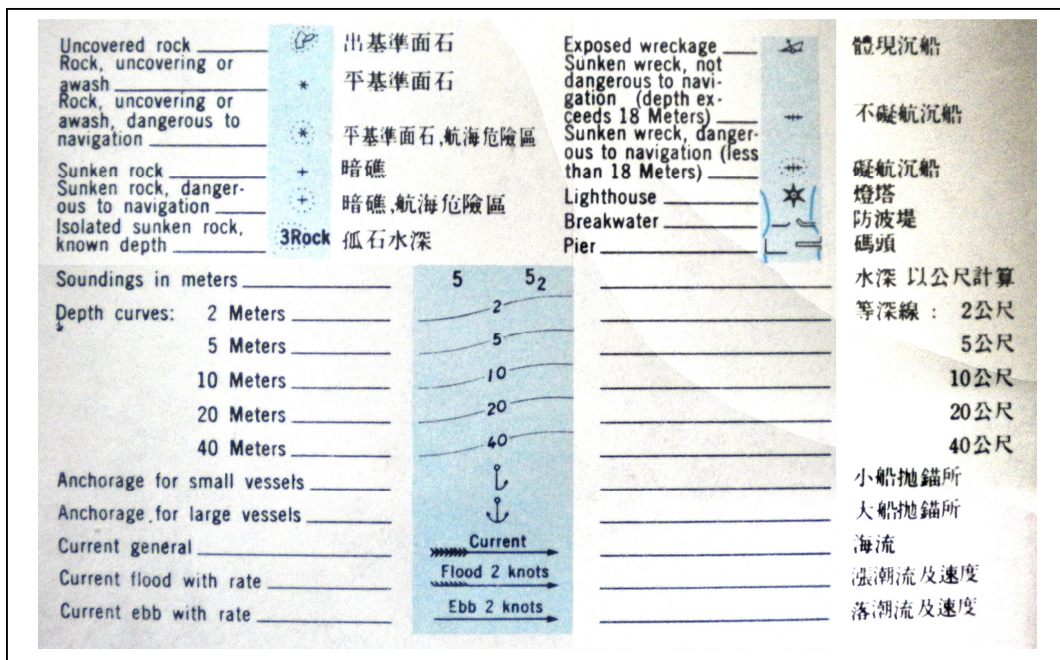 Uncovered rock 出基準面石
Rock, uncovering or
awash 平基準面石
Rock, uncovering or
awash, dangerous to
navigation 平基準面石,航海危險區
Sunken rock 暗礁
Sunken rock, danger-
ous to navigation 暗礁,航海危險區
Isolated sunken rock,
known depth 3Rock 孤石水深
Exposed wreckage 體現沉船
Sunken wreck, not
dangerous to navi-
gation (depth ex-
ceeds 18 Meters) 不礙航沉船
Sunken wreck, danger-
ous to navigation (less
than 18 Meters) 礙航沉船
Lighthouse 燈塔
Breakwater 防波堤
Pier 碼頭
Soundings in meters 5 5₂ 水深 以公尺計算
Depth curves: 2 Meters 2 等深線： 2公尺
5 Meters 5 5公尺
10 Meters 10 10公尺
20 Meters 20 20公尺
40 Meters 40 40公尺
Anchorage for small vessels 小船拋錨所
Anchorage for large vessels 大船拋錨所
Current general Current 海流
Current flood with rate Flood 2 knots 漲潮流及速度
Current ebb with rate Ebb 2 knots 落潮流及速度